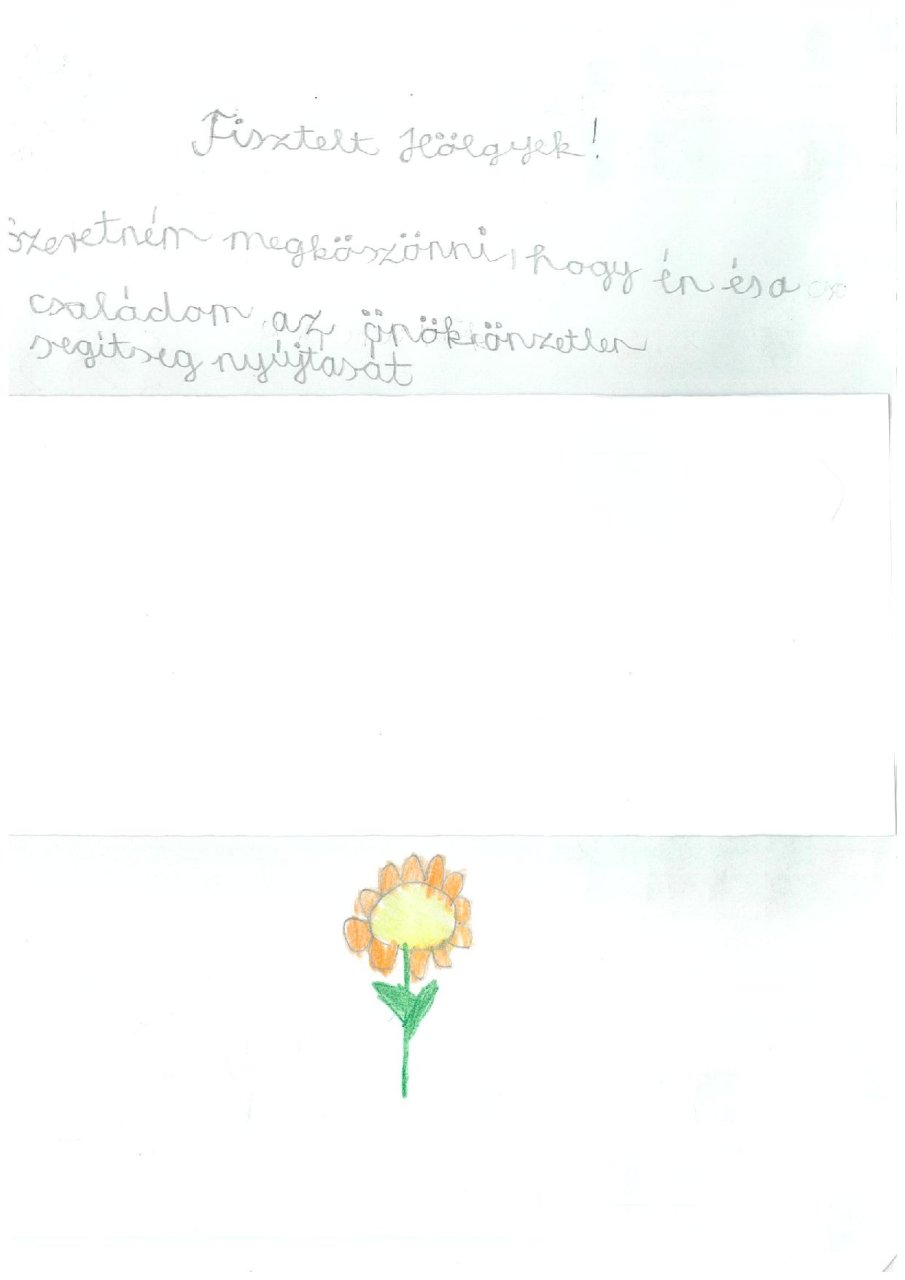 Tisztelt Hölgyek!
Szeretném megköszönni, hogy én ésa
családom az önök önzetlen
segítség nyújtasát